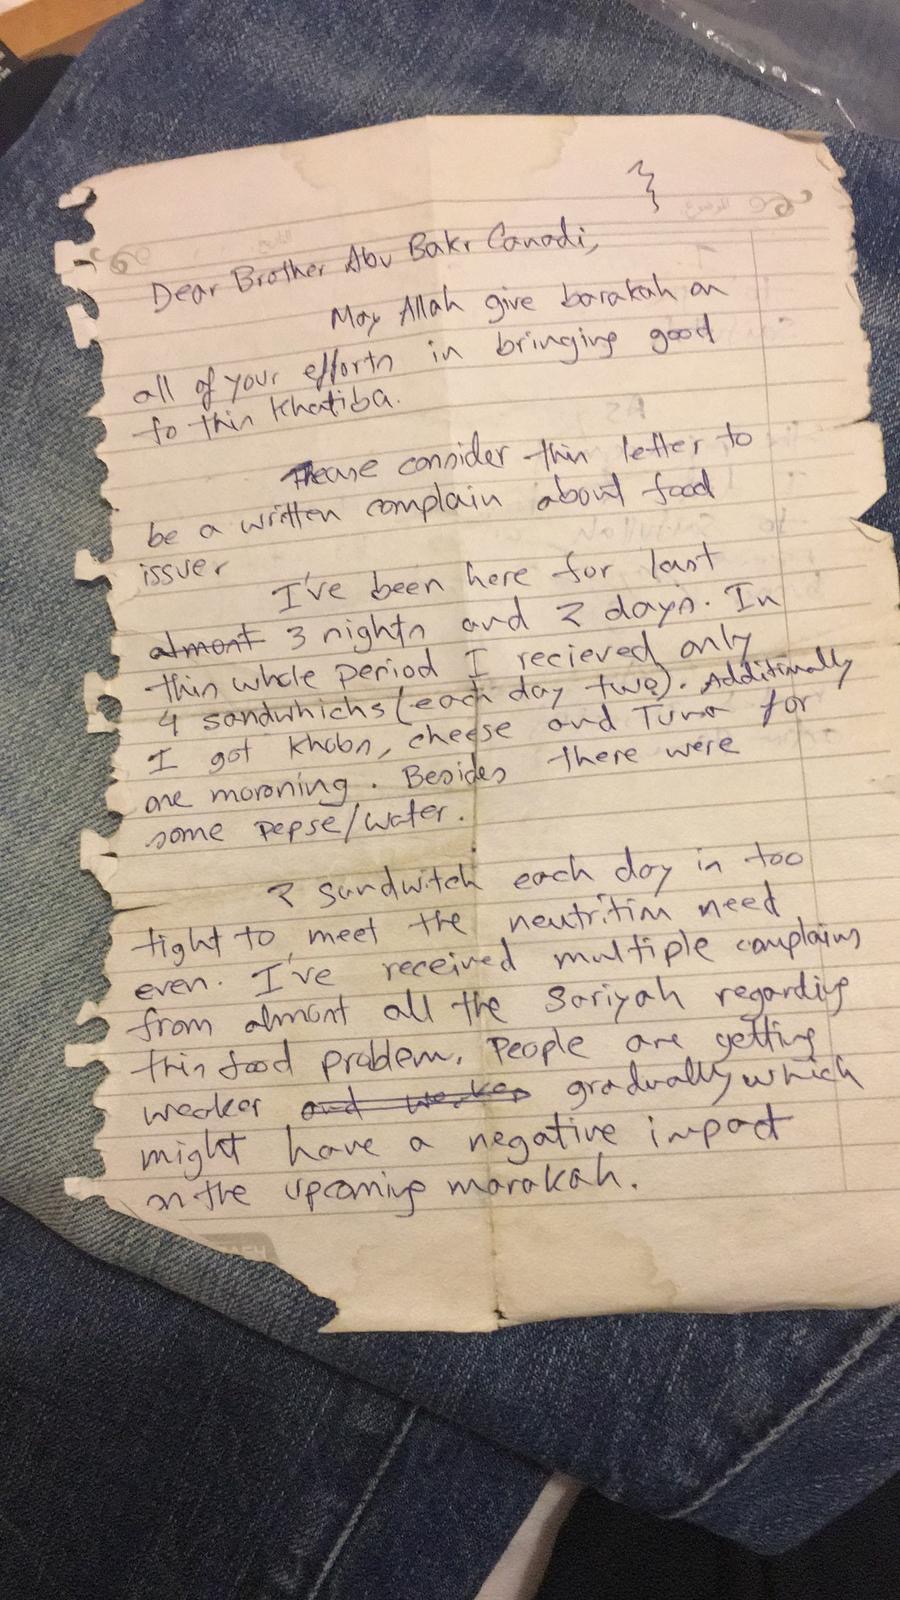 Dear Brother Abu Bakr Canadi,
May Allah give barakah on
all of your efforts in bringing good
to this Khatiba.
Please consider this letter to
be a written complain about food
issue.
I've been here for last
almost 3 nights and 2 days. In
this whole period I recieved only
4 sandwhichs (each day two). Additionally
I got Khobs, cheese and Tuna for
one moroning. Besides there were
some pepse/water.
2 sandwitch each day is too
tight to meet the neutrition need
even. I've received multiple complains
from almost all the Sariyah regarding
this food problem. People are getting
weaker and weaker gradually which
might have a negative impact
on the upcoming marakah.